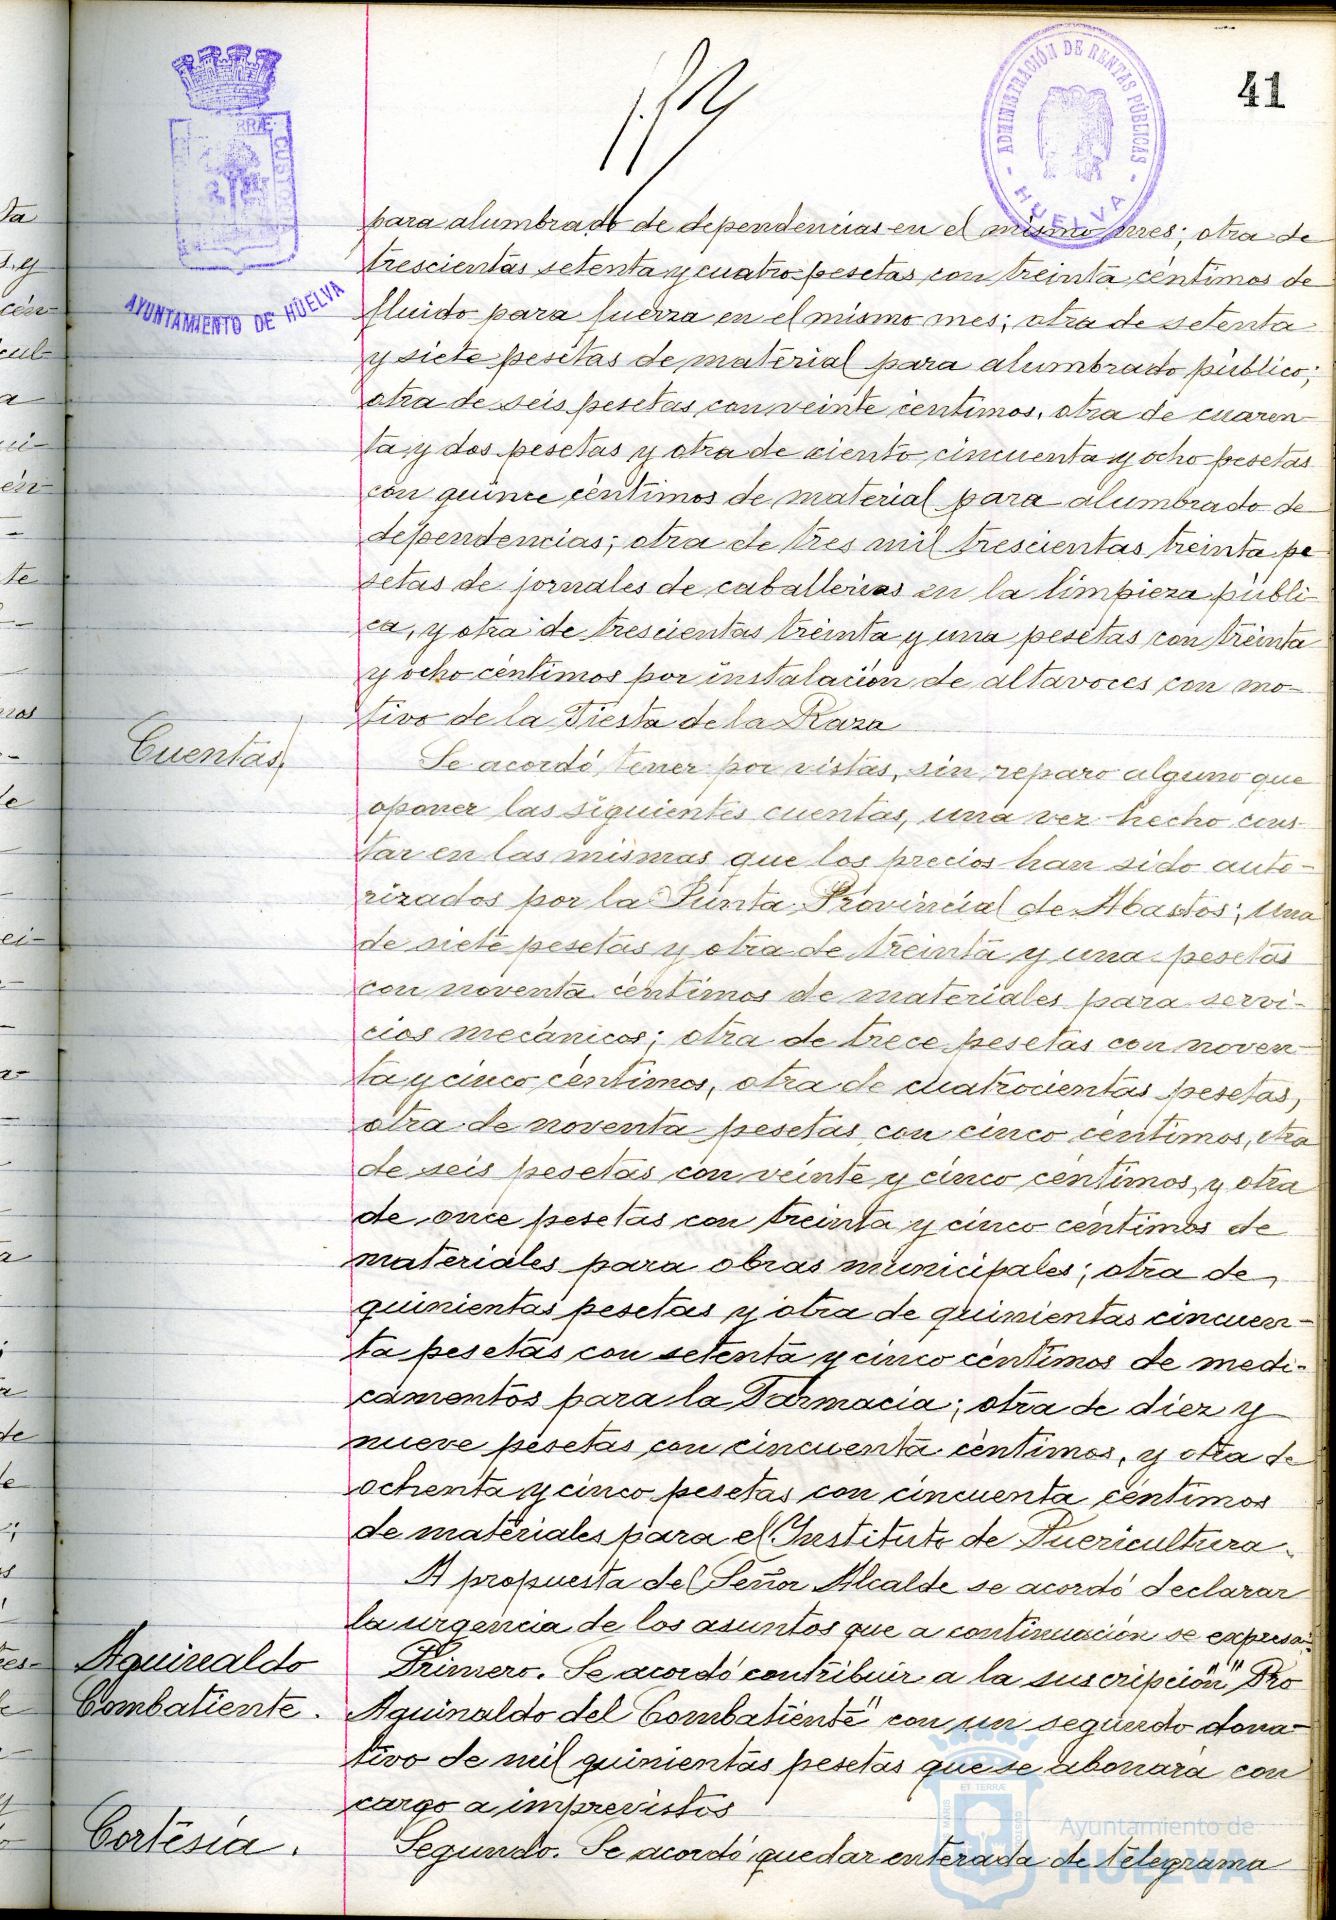 41
ADMINISTRACIÓN DE RENTAS PÚBLICAS
- HUELVA -
RRÆ CUSTO
AYUNTAMIENTO DE HUELVA
para alumbrado de dependencias en el mismo mes; otra de
trescientas setenta y cuatro pesetas con treinta céntimos de
fluido para fuerza en el mismo mes; otra de setenta
y siete pesetas de material para alumbrado público;
otra de seis pesetas con veinte céntimos, otra de cuaren-
ta y dos pesetas y otra de ciento cincuenta y ocho pesetas
con quince céntimos de material para alumbrado de
dependencias; otra de tres mil trescientas treinta pe
setas de jornales de caballerias en la limpieza públi-
ca, y otra de trescientas treinta y una pesetas con treinta
y ocho céntimos por instalación de altavoces con mo-
tivo de la Fiesta de la Raza
Cuentas.
Se acordó tener por vistas, sin reparo alguno que
oponer las siguientes cuentas, una vez hecho cons-
tar en las mismas que los precios han sido auto-
rizados por la Junta Provincial de Abastos; una
de siete pesetas y otra de treinta y una pesetas
con noventa céntimos de materiales para servi-
cios mecánicos; otra de trece pesetas con noven-
ta y cinco céntimos, otra de cuatrocientas pesetas,
otra de noventa pesetas con cinco céntimos, otra
de seis pesetas con veinte y cinco céntimos, y otra
de once pesetas con treinta y cinco céntimos de
materiales para obras municipales; otra de
quinientas pesetas y otra de quinientas cincuen-
ta pesetas con setenta y cinco céntimos de medi-
camentos para la Farmacia; otra de diez y
nueve pesetas con cincuenta céntimos, y otra de
ochenta y cinco pesetas con cincuenta céntimos
de materiales para el Instituto de Puericultura.
A propuesta del Señor Alcalde se acordó declarar
la urgencia de los asuntos que a continuación se expresa:
Aguinaldo
Combatiente.
Primero. Se acordó contribuir a la suscripción "Pro
Aguinaldo del Combatiente" con un segundo dona-
tivo de mil quinientas pesetas que se abonará con
cargo a imprevistos
Cortesía.
Segundo. Se acordó quedar enterada de telegrama
Ayuntamiento de
HUELVA